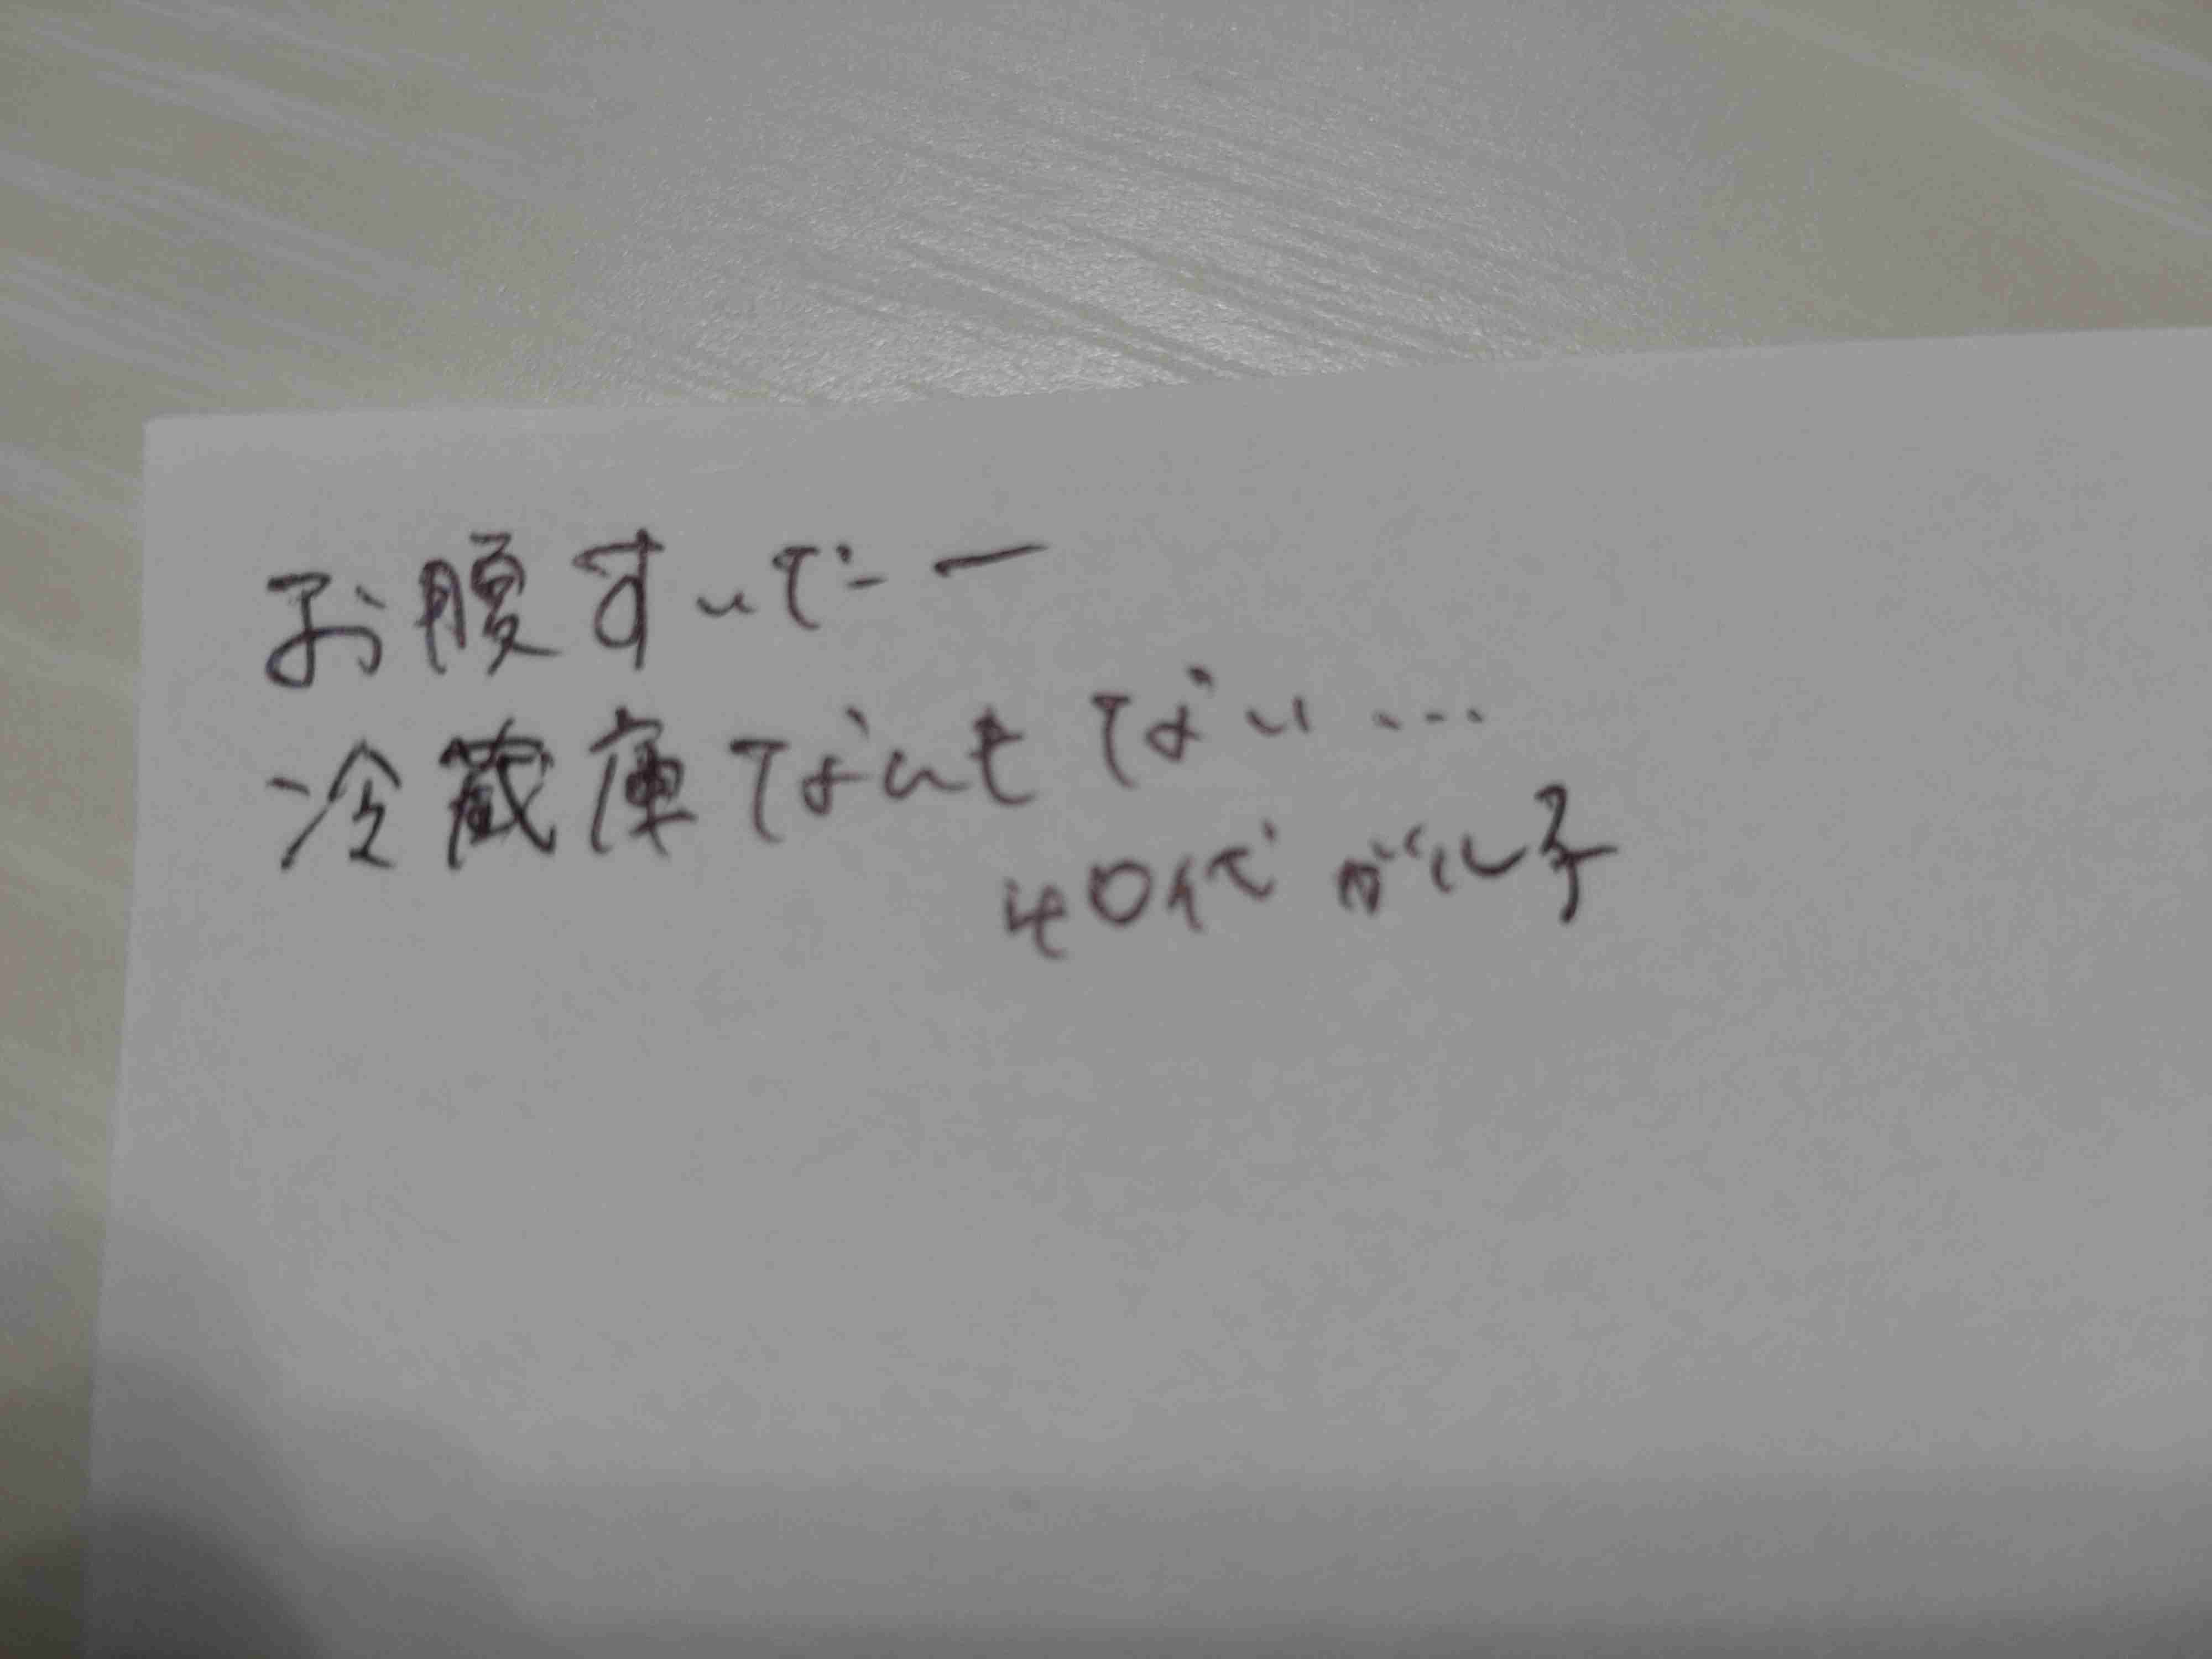 お腹すいたー
冷蔵庫なんもない…
40代がル子